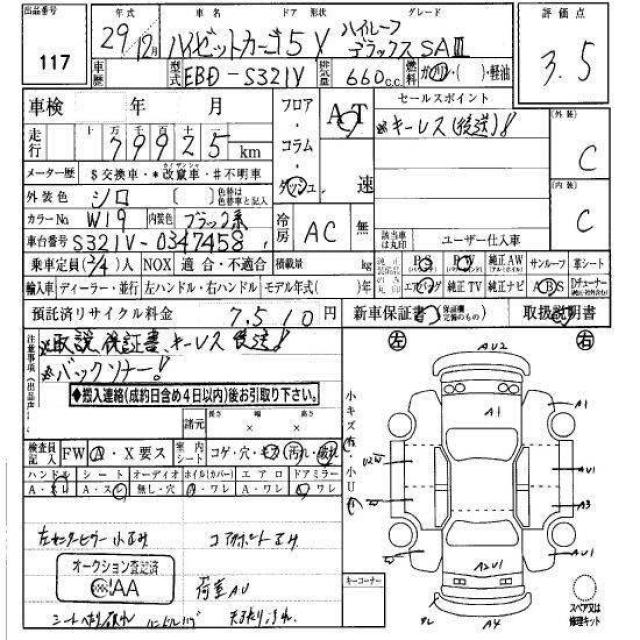 出品番号 年式 車名 ドア 形状 グレード 評価点
117 29年12月 ハイゼットカーゴ 5 V ハイルーフ デラックスSAⅢ 3.5
車歴 型式 EBD-S321V 排気量 660c.c. 燃料 ガソリン・( )・軽油
車検 年 月 フロア・コラム・ダッシュ AT 速 セールスポイント
※キーレス(後送)!
外装 C
内装 C
走行 十万千百十一 79925 km
メーター歴 $交換車・*改竄車・#不明車
外装色 シロ 〔 〕色替は色替車と記入
カラーNo. W19 内装色 ブラック系
冷房 AC 無
該当車は丸印 ユーザー仕入車
車台番号 S321V-0347458
乗車定員(2/4)人 NOX 適合・不適合 積載量 kg
PS PW 純正AW サンルーフ 革シート
輸入車 ディーラー・並行 左ハンドル・右ハンドル モデル年式( )年
エアバッグ 純正TV 純正ナビ ABS
預託済リサイクル料金 7,510円 新車保証書 取扱説明書
注意事項
※取説、保証書、キーレス後送!
※バックソナー!
◆搬入連絡(成約日含め4日以内)後お引取り下さい。
諸元 長さ × 幅 × 高さ
検査員記入 FW A・X要ス 室内シート コゲ・穴・キズ・汚れ・破れ
ハンドル シート オーディオ ホイル(カバー) エアロ ドアミラー
A・スレ A・スレ 無し・穴 A・ワレ A・ワレ A・ワレ
小キズ有・小U有
左 右
AU2
A1 A1
AU1
A3
A2U1 AU1
A4
コアサポート
オークション査定済
AA
荷室AU
シート
天張り汚れ
キーコーナー
スペア又は修理キット